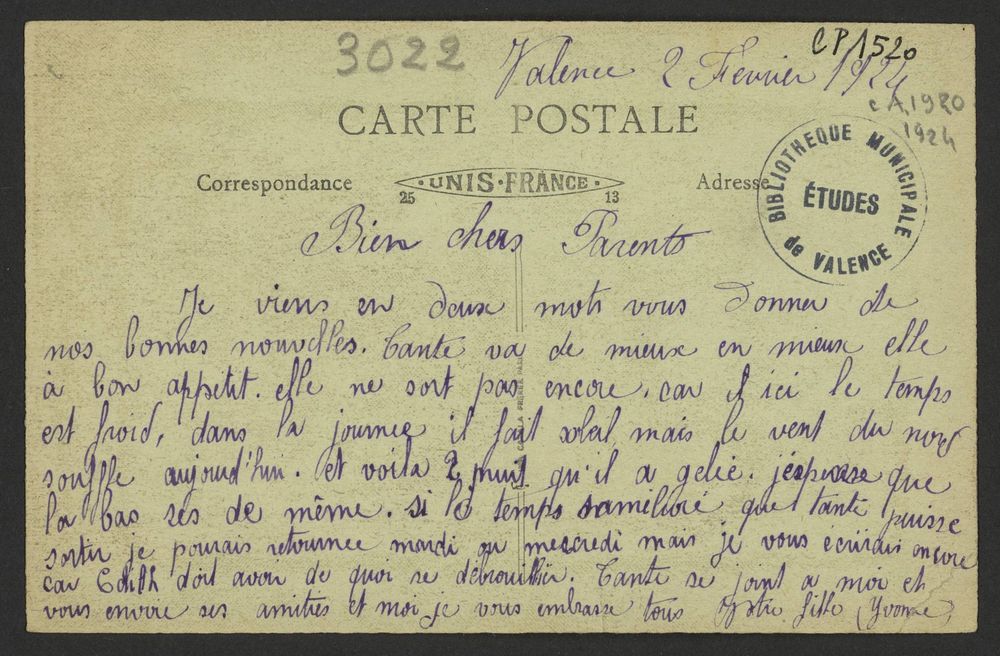 3022
CP1520
Valence 2 Fevrier 1924
CA 1920
1924
CARTE POSTALE
Correspondance
UNIS-FRANCE
25 13
Adresse
BIBLIOTHEQUE MUNICIPALE
ÉTUDES
de VALENCE
Bien chers Parents
Je viens en deux mots vous donner de
nos bonnes nouvelles. Tante va de mieux en mieux elle
à bon appetit. elle ne sort pas encore. car ici le temps
est froid, dans la journee il fait soleil mais le vent du nord
souffle aujourd'hui. et voila 2 nuit qu'il a gelée. j'espere que
la bas ses de même. si le temps saméliore que tante puisse
sortir je pourais retournee mardi ou mercredi mais je vous écrirais encore
car Edith doit avoir de quoi se débrouillier. Tante se joint a moi et
vous envoie ses amitiés et moi je vous embrasse tous Votre fille (Yvonne)